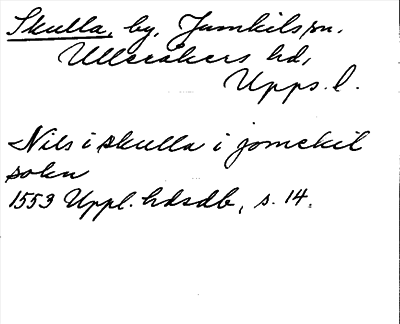 Skulla, by, Jumkils sn.
Ulleråkers hd,
Upps. l.
Nils i skulla i jomekil
sokn
1553 Uppl. hdsdb, s. 14.